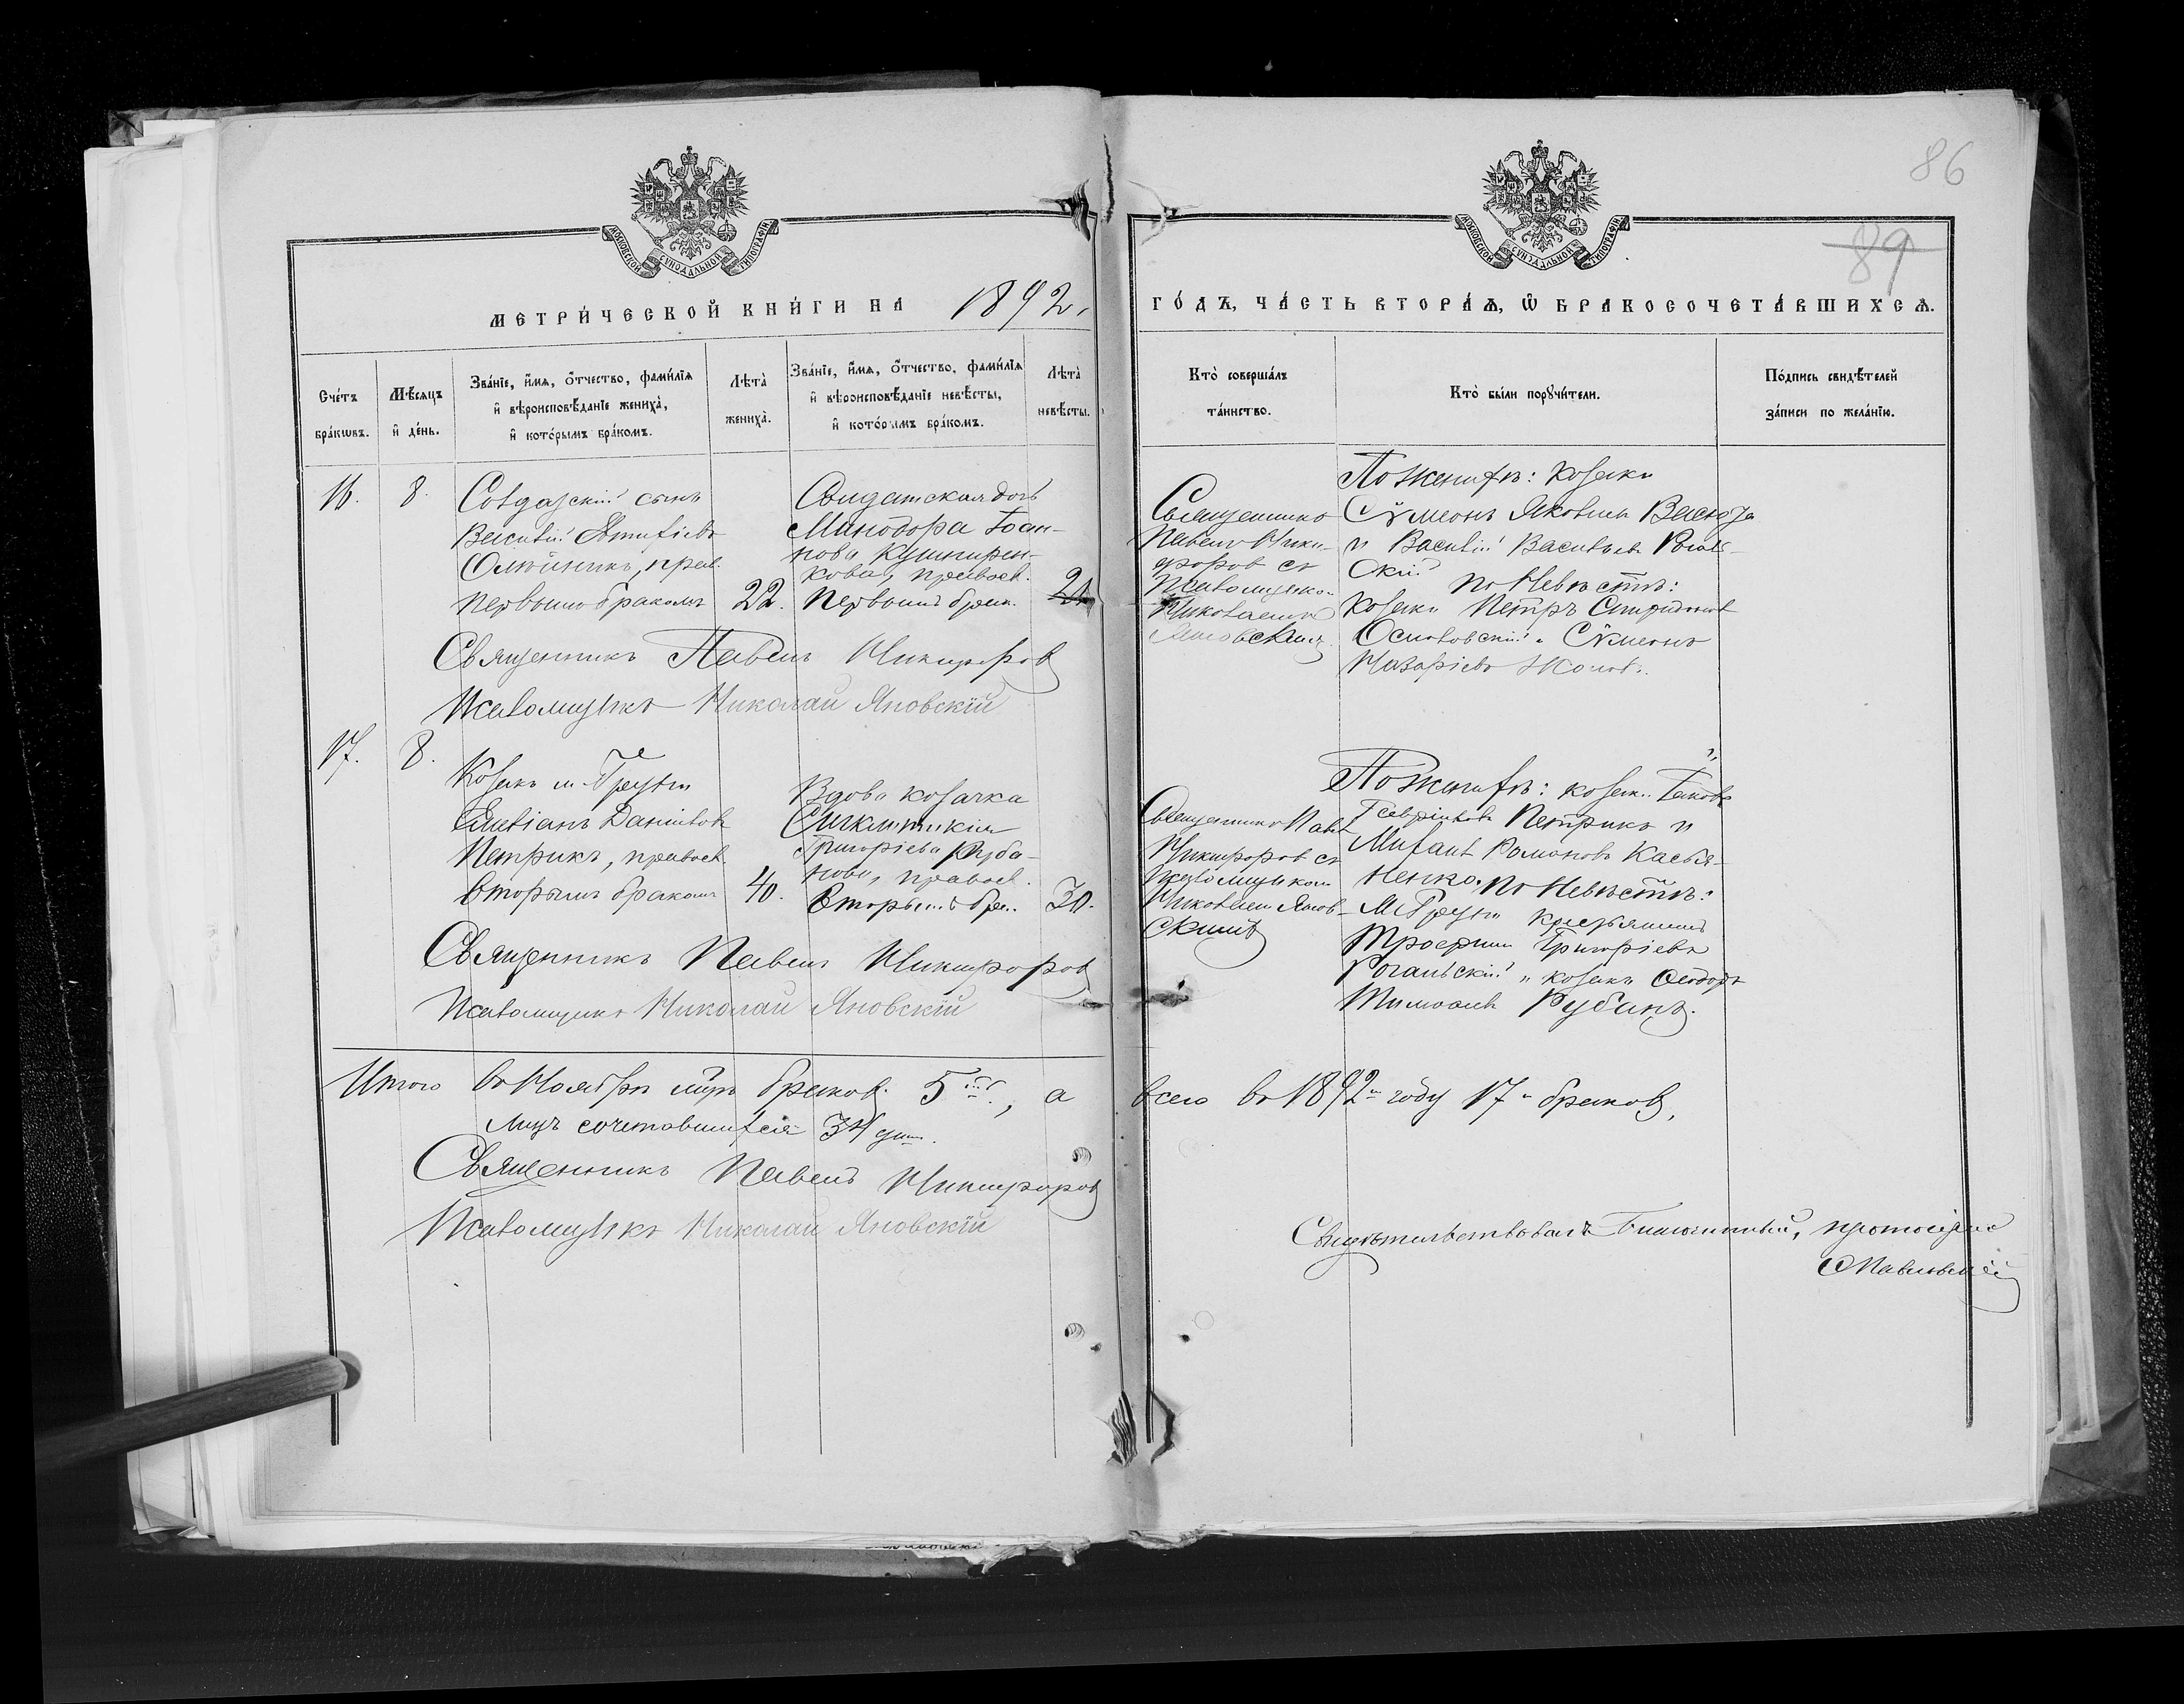 86
89
МОСКОВСКОЙ СѴНОДАЛЬНОЙ ТИПОГРАФІИ
МОСКОВСКОЙ СѴНОДАЛЬНОЙ ТИПОГРАФІИ
МЕТРИ́ЧЕСКОЙ КНИ́ГИ НА 1892.
ГО́ДЪ, ЧА́СТЬ ВТОРА́Ѧ, Ѡ҆ БРАКОСОЧЕТА́ВШИХСѦ.
Сче́тъ бра́кѡвъ.
Мѣ́сѧцъ и҆ де́нь.
Зва́нїе, и҆́мѧ, ѻ҆́тчество, фами́лїѧ
и҆ вѣроисповѣ́данїе жениха̀,
и҆ кото́рымъ бра́комъ.
Лѣта̀ жениха̀.
Зва́нїе, и҆́мѧ, ѻ҆́тчество, фами́лїѧ
и҆ вѣроисповѣ́данїе невѣ́сты,
и҆ кото́рымъ бра́комъ.
Лѣта̀ невѣ́сты.
Кто̀ соверша́лъ
та́инство.
Кто̀ бы́ли порꙋчи́тели.
По́дпись свидѣ́телей
за́писи по жела́нїю.
16.
8.
Солдатскій сынъ
Василій
Олійникъ, прав.
первымъ бракомъ
22.
Солдатская дочь
Минодора Іоан-
нова Кушнирен-
кова, православ.
первымъ брак.
21
Священникъ
Павелъ Ники-
форовъ съ
Псаломщико.
Николаемъ
Яновскимъ
По женихѣ: козаки
Сѵмеонъ Яковлевъ
и Василій Васильевъ
скій
по Невѣстѣ:
Козаки Петръ Спиридоновъ
Осиповскій и Сѵмеонъ
Назаріевъ
Священникъ Павелъ Никифоровъ
Псаломщикъ Николай Яновскій
17.
8.
Козакъ м. Груни
Даніиловъ
Петрикъ, правосл.
вторымъ бракомъ
40.
Вдова козачка
Григоріева Руба-
нова, правосл.
Вторымъ брак.
30.
Священникъ Павелъ
Никифоровъ съ
Псаломщикомъ
Николаемъ Янов-
скимъ
По женихѣ: козаки Іаковъ
Гавріиловъ Петрикъ и
Михаилъ Романовъ Касья-
ненко, по Невѣстѣ:
М. Груни крестьянинъ
Трофимъ Григоріевъ
Рогальскій и козакъ Ѳеодоръ
Тимоѳеевъ Рубанъ.
Священникъ Павелъ Никифоровъ
Псаломщикъ Николай Яновскій
Итого въ Ноябрѣ мцѣ браковъ 5, а
всего въ 1892 году 17 браковъ,
лицъ сочетавшихся 34
Священникъ Павелъ Никифоровъ
Псаломщикъ Николай Яновскій
Свидѣтельствовалъ Благочинный, протоіерей